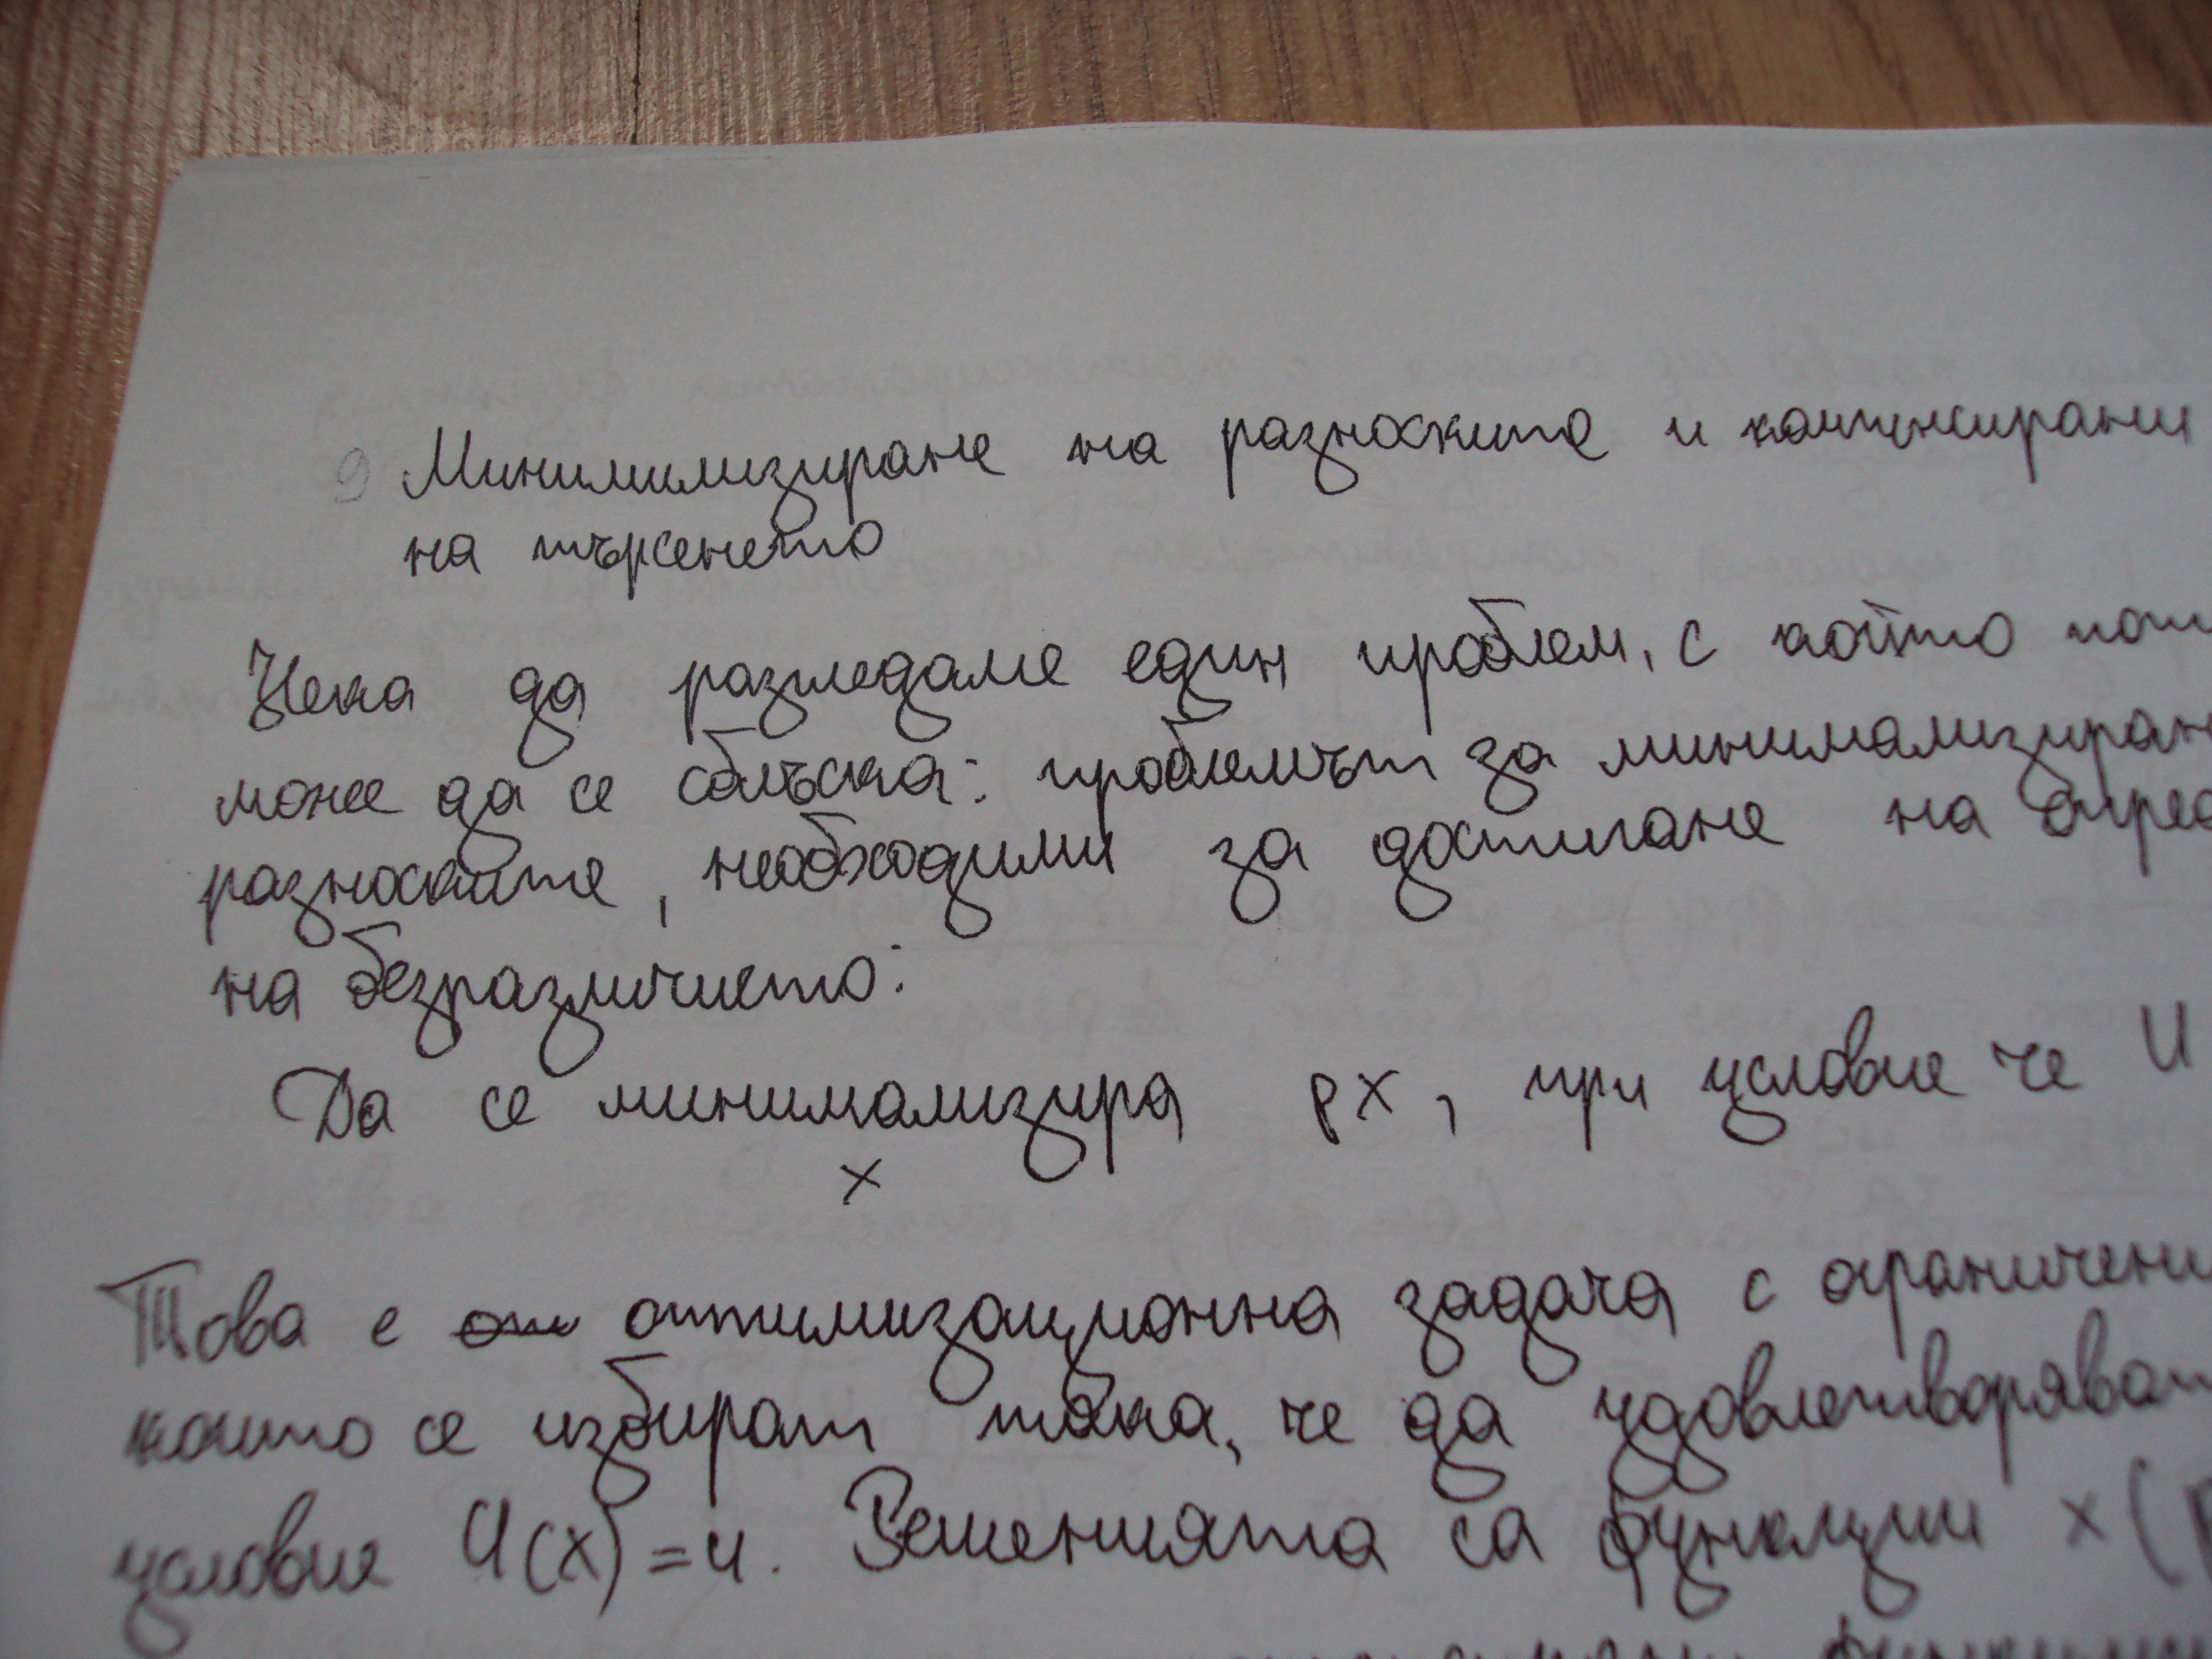 9 Минимилизиране на разноските и компенсирани
на търсенето
Нека да разгледаме един проблем, с който
може да се сблъска: проблемът за минимализиран
разноските, необходими за достигане на опред
на безразличието:
Да се минимализира px, при условие че U
x
Това е оптимизационна задача с ограничени
които се избират така, че да удовлетворяват
условие U(x)=u. Решенията са функции x(p